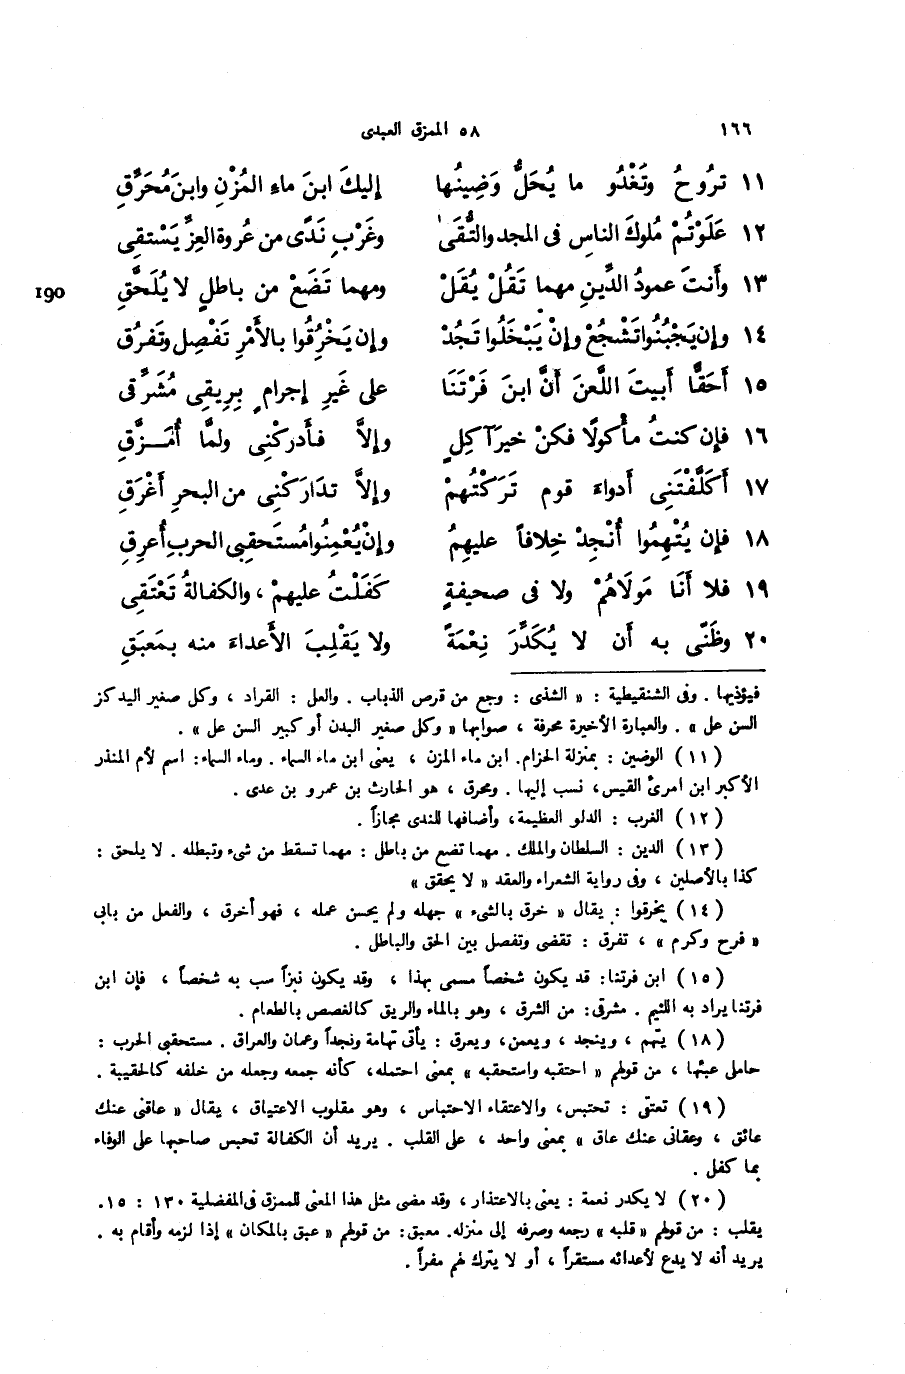 ١٦٦ ٥٨ الممزق العبدى
١١ تَرُوحُ وتَغْدُو ما يُحَلُّ وَضِينُها إليكَ ابنَ ماءِ المُزْنِ وابنَ مُحَرَّقِ
١٢ عَلَوْتُمْ مُلوكَ الناسِ فى المجدِ والتُّقَى وغَرْبِ نَدًى من عُروةِ العِزِّ يَسْتقِى
١٣ وأَنتَ عمودُ الدِّينِ مهما تَقُلْ يُقَلْ ومهما تَضَعْ من باطلٍ لا يُلَحَّقِ
190
١٤ وإن يَجْبُنُوا تَشْجُعْ وإنْ يَبْخَلُوا تَجُدْ وإن يَخْرُقُوا بالأَمْرِ تَفْصِل وتَفرُقِ
١٥ أَحَقًّا أَبيتَ اللَّعنَ أَنَّ ابنَ فَرْتَنَا على غَيرِ إجرامٍ بِرِيقِى مُشَرِّقى
١٦ فإن كنتُ مأْكولًا فكنْ خيرَ آكِلٍ وإلاَّ فأَدركْنِى ولمَّا أُمَــزَّقِ
١٧ أَكَلَّفْتَنِى أَدواءَ قومٍ تَرَكْتُهمْ وإلاَّ تدَارَكْنِى من البحرِ أَغْرَقِ
١٨ فإن يُتْهِمُوا أُنْجِدْ خِلافاً عليهِمُ وإنْ يُعْمِنُوا مُستَحقِبِى الحربِ أُعرِقِ
١٩ فلا أَنَا مَولَاهُمْ ولا فى صحيفةٍ كَفَلْتُ عليهمْ ، والكفالةُ تَعْتَقِى
٢٠ وظَنِّى به أَن لا يُكَدِّرَ نِعْمَةً ولا يَقْلِبَ الأَعداءَ منه بمَعبَقِ
فيؤذيها . وفى الشنقيطية : « الشذى : وجع من قرص الذباب . والعل : القراد ، وكل صغير اليد كز
السن عل » . والعبارة الأخيرة محرفة ، صوابها « وكل صغير البدن أو كبير السن عل » .
( ١١ ) الوضين : بمنزلة الحزام. ابن ماء المزن ، يعنى ابن ماء السماء . وماء السماء : اسم لأم المنذر
الأكبر ابن امرئ القيس، نسب إليها . ومحرق ، هو الحارث بن عمرو بن عدى .
( ١٢ ) الغرب : الدلو العظيمة، وأضافها للندى مجازاً .
( ١٣ ) الدين : السلطان والملك . مهما تضع من باطل : مهما تسقط من شىء وتبطله . لا يلحق :
كذا بالأصلين ، وفى رواية الشعراء والعقد « لا يحقق »
( ١٤ ) يخرقوا : يقال « خرق بالشىء » جهله ولم يحسن عمله ، فهو أخرق ، والفعل من بابى
« فرح وكرم » ، تفرق : تقضى وتفصل بين الحق والباطل .
( ١٥ ) ابن فرتنا: قد يكون شخصاً مسمى بهذا ، وقد يكون نبزاً سب به شخصاً ، فإن ابن
فرتنا يراد به اللئيم . مشرقى: من الشرق ، وهو بالماء والريق كالغصص بالطعام .
( ١٨ ) يتهم ، وينجد ، ويعمن، ويعرق : يأتى تهامة ونجداً وعمان والعراق . مستحقبى الحرب :
حاملى عبئها ، من قولهم « احتقبه واستحقبه » بمعنى احتمله، كأنه جمعه وجعله من خلفه كالحقيبة .
( ١٩ ) تعتقى : تحتبس، والاعتقاء الاحتباس ، وهو مقلوب الاعتياق ، يقال « عاقنى عنك
عائق ، وعقانى عنك عاق » بمعنى واحد ، على القلب . يريد أن الكفالة تحبس صاحبها على الوفاء
بما كفل .
( ٢٠ ) لا يكدر نعمة : يعنى بالاعتذار ، وقد مضى مثل هذا المعنى للممزق فى المفضلية ١٣٠ : ١٥.
يقلب : من قولهم « قلبه » رجعه وصرفه إلى منزله. معبق: من قولهم « عبق بالمكان » إذا لزمه وأقام به .
يريد أنه لا يدع لأعدائه مستقراً ، أو لا يترك لهم مفراً .